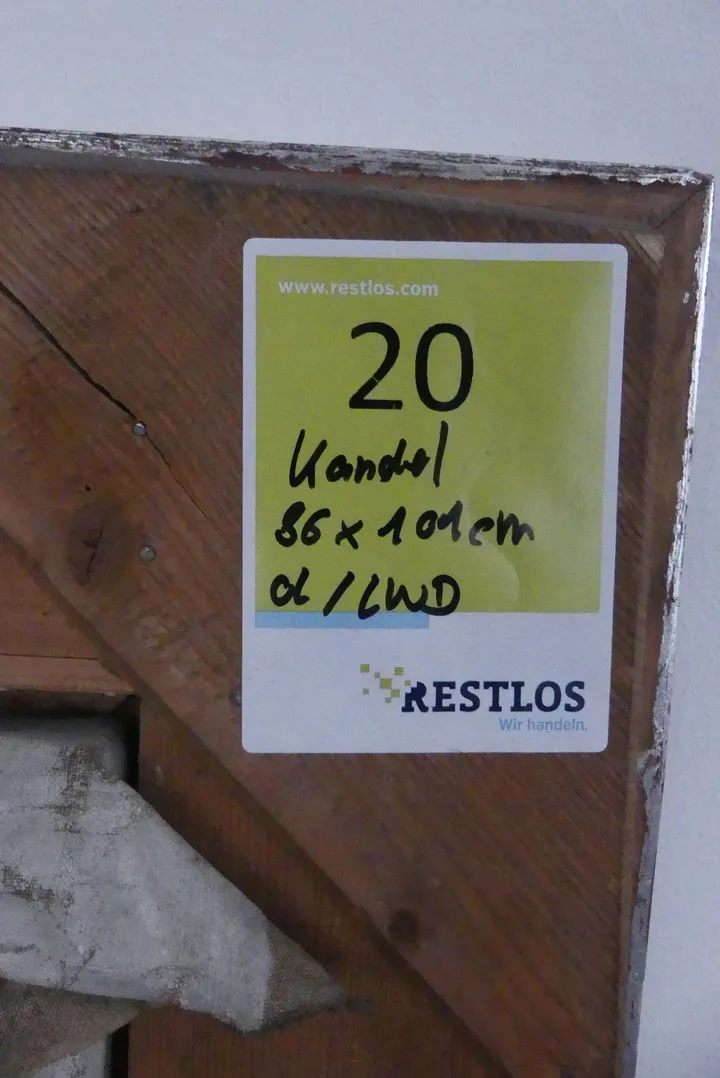 www.restlos.com
20
Kandel
86 x 101 cm
öl / LWD
RESTLOS
Wir handeln.